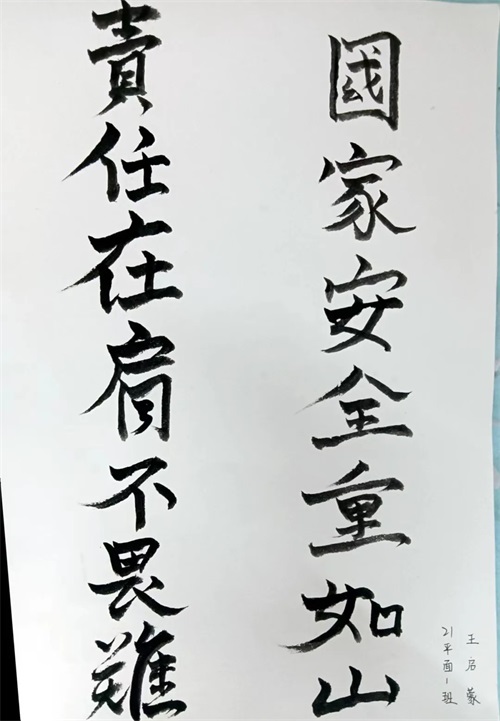 國家安全重如山
責任在肩不畏難
王启蒙
21平面1班